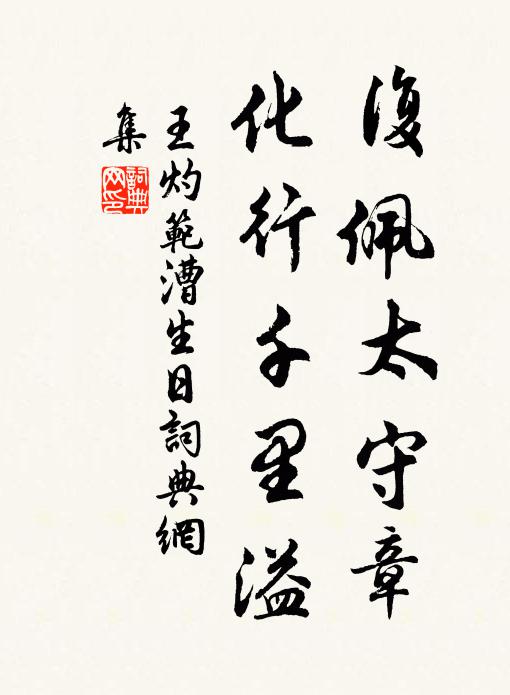 復佩太守章
化行千里溢
王灼範漕生日詞典網
集
詞典
网印